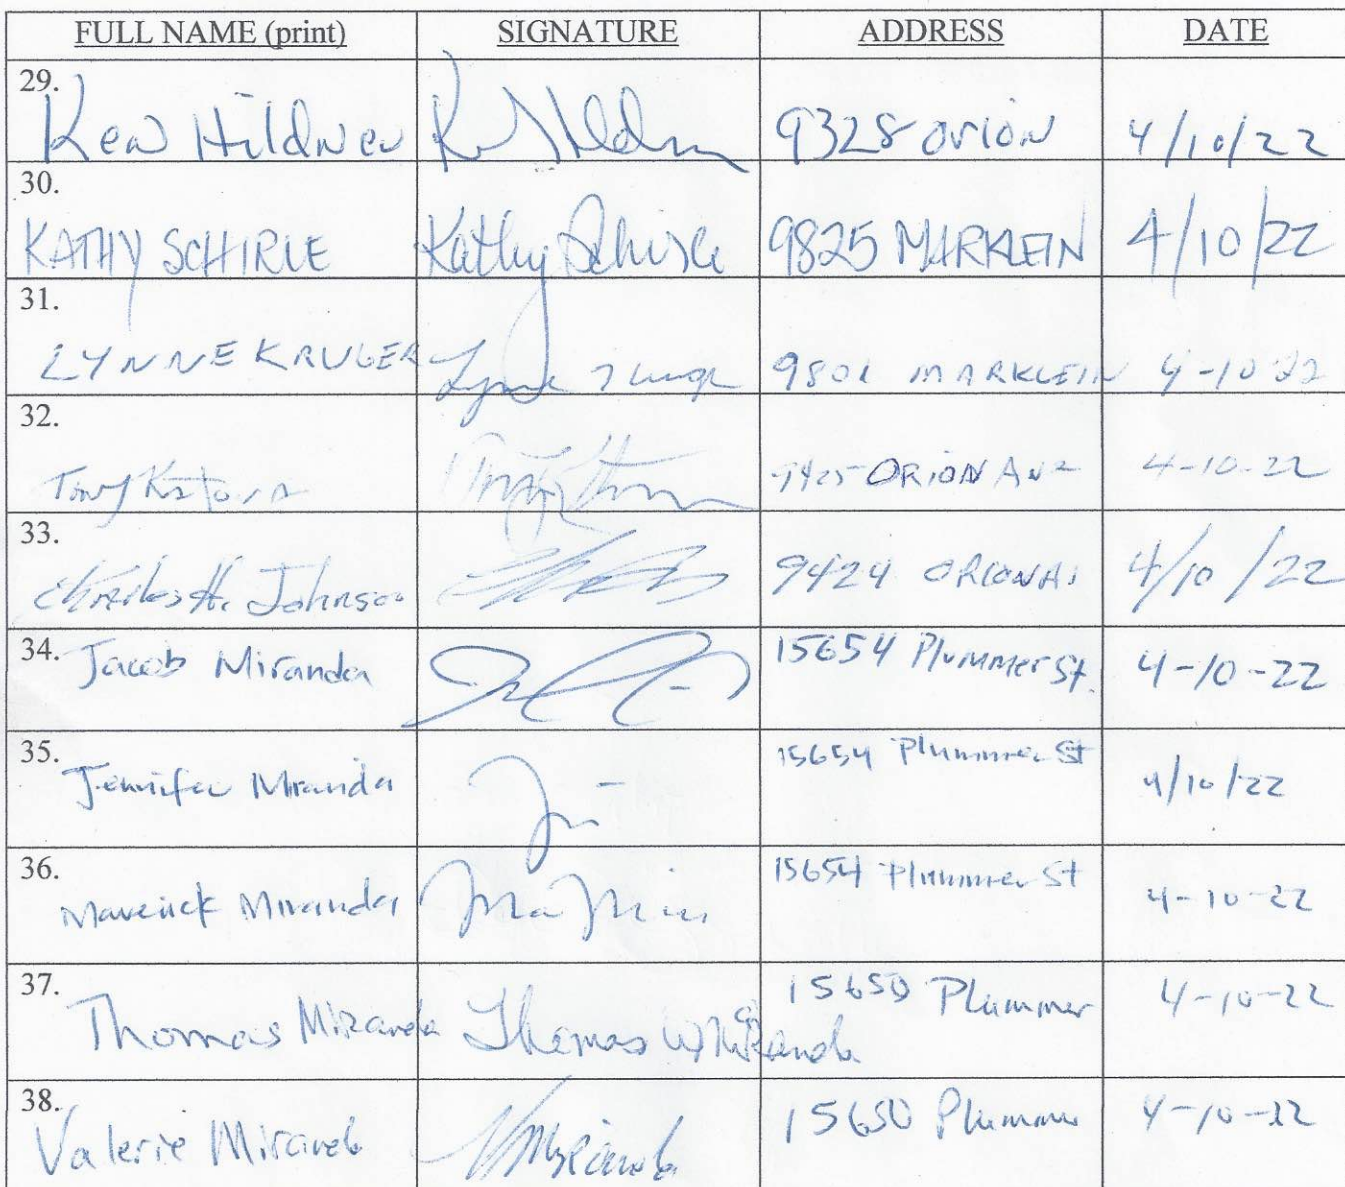 FULL NAME (print) SIGNATURE ADDRESS DATE
29.
Ken Hildner 9328 Orion 4/10/22
30.
KATHY SCHIRLE Kathy Schirle 9825 MARKLEIN 4/10/22
31.
LYNNE KRUGER Lynne 9801 MARKLEIN 4-10-22
32.
Tony ORION Ave 4-10-22
33.
Charles H. Johnson 9424 ORION 4/10/22
34. Jacob Miranda 15654 Plummer St. 4-10-22
35.
Jennifer Miranda 15654 Plummer St 4/10/22
36.
Maverick Miranda 15654 Plummer St 4-10-22
37.
Thomas Miranda Thomas W Miranda 15650 Plummer 4-10-22
38.
Valerie Miranda 15650 Plummer 4-10-22